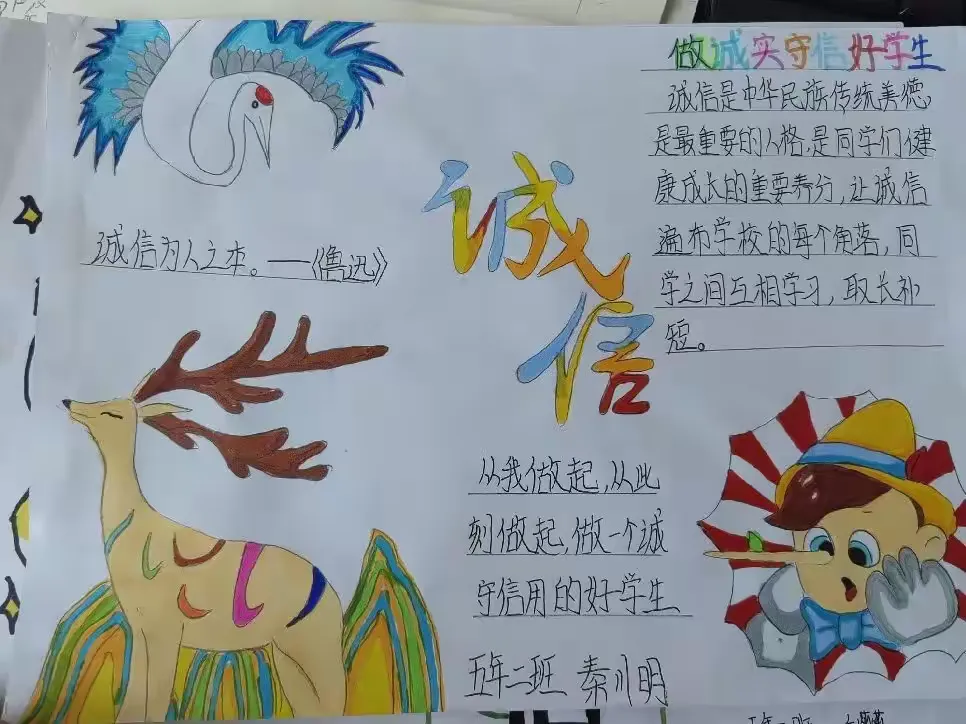 诚信为人之本。——《鲁迅》
诚
信
做诚实守信好学生
诚信是中华民族传统美德,
是最重要的人格,是同学们健
康成长的重要养分,让诚信
遍布学校的每个角落,同
学之间互相学习,取长补
短。
从我做起,从此
刻做起,做一个诚
守信用的好学生
五年二班 秦川明